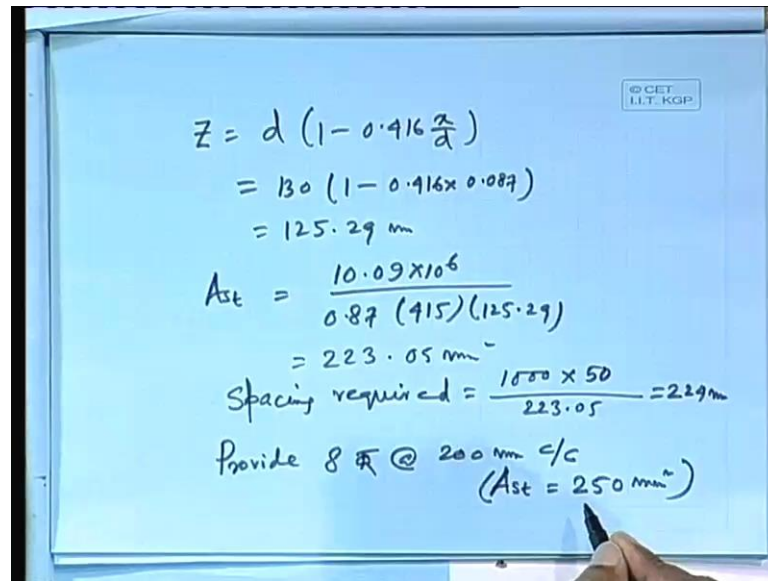 © CET
I.I.T. KGP
Z = d (1 - 0.416 x/d)
= 130 (1 - 0.416 x 0.087)
= 125.29 mm
Ast = 10.09 x 10⁶ / 0.87 (415) (125.29)
= 223.05 mm²
Spacing required = 1000 x 50 / 223.05 = 224 mm
Provide 8 @ 200 mm c/c
(Ast = 250 mm²)